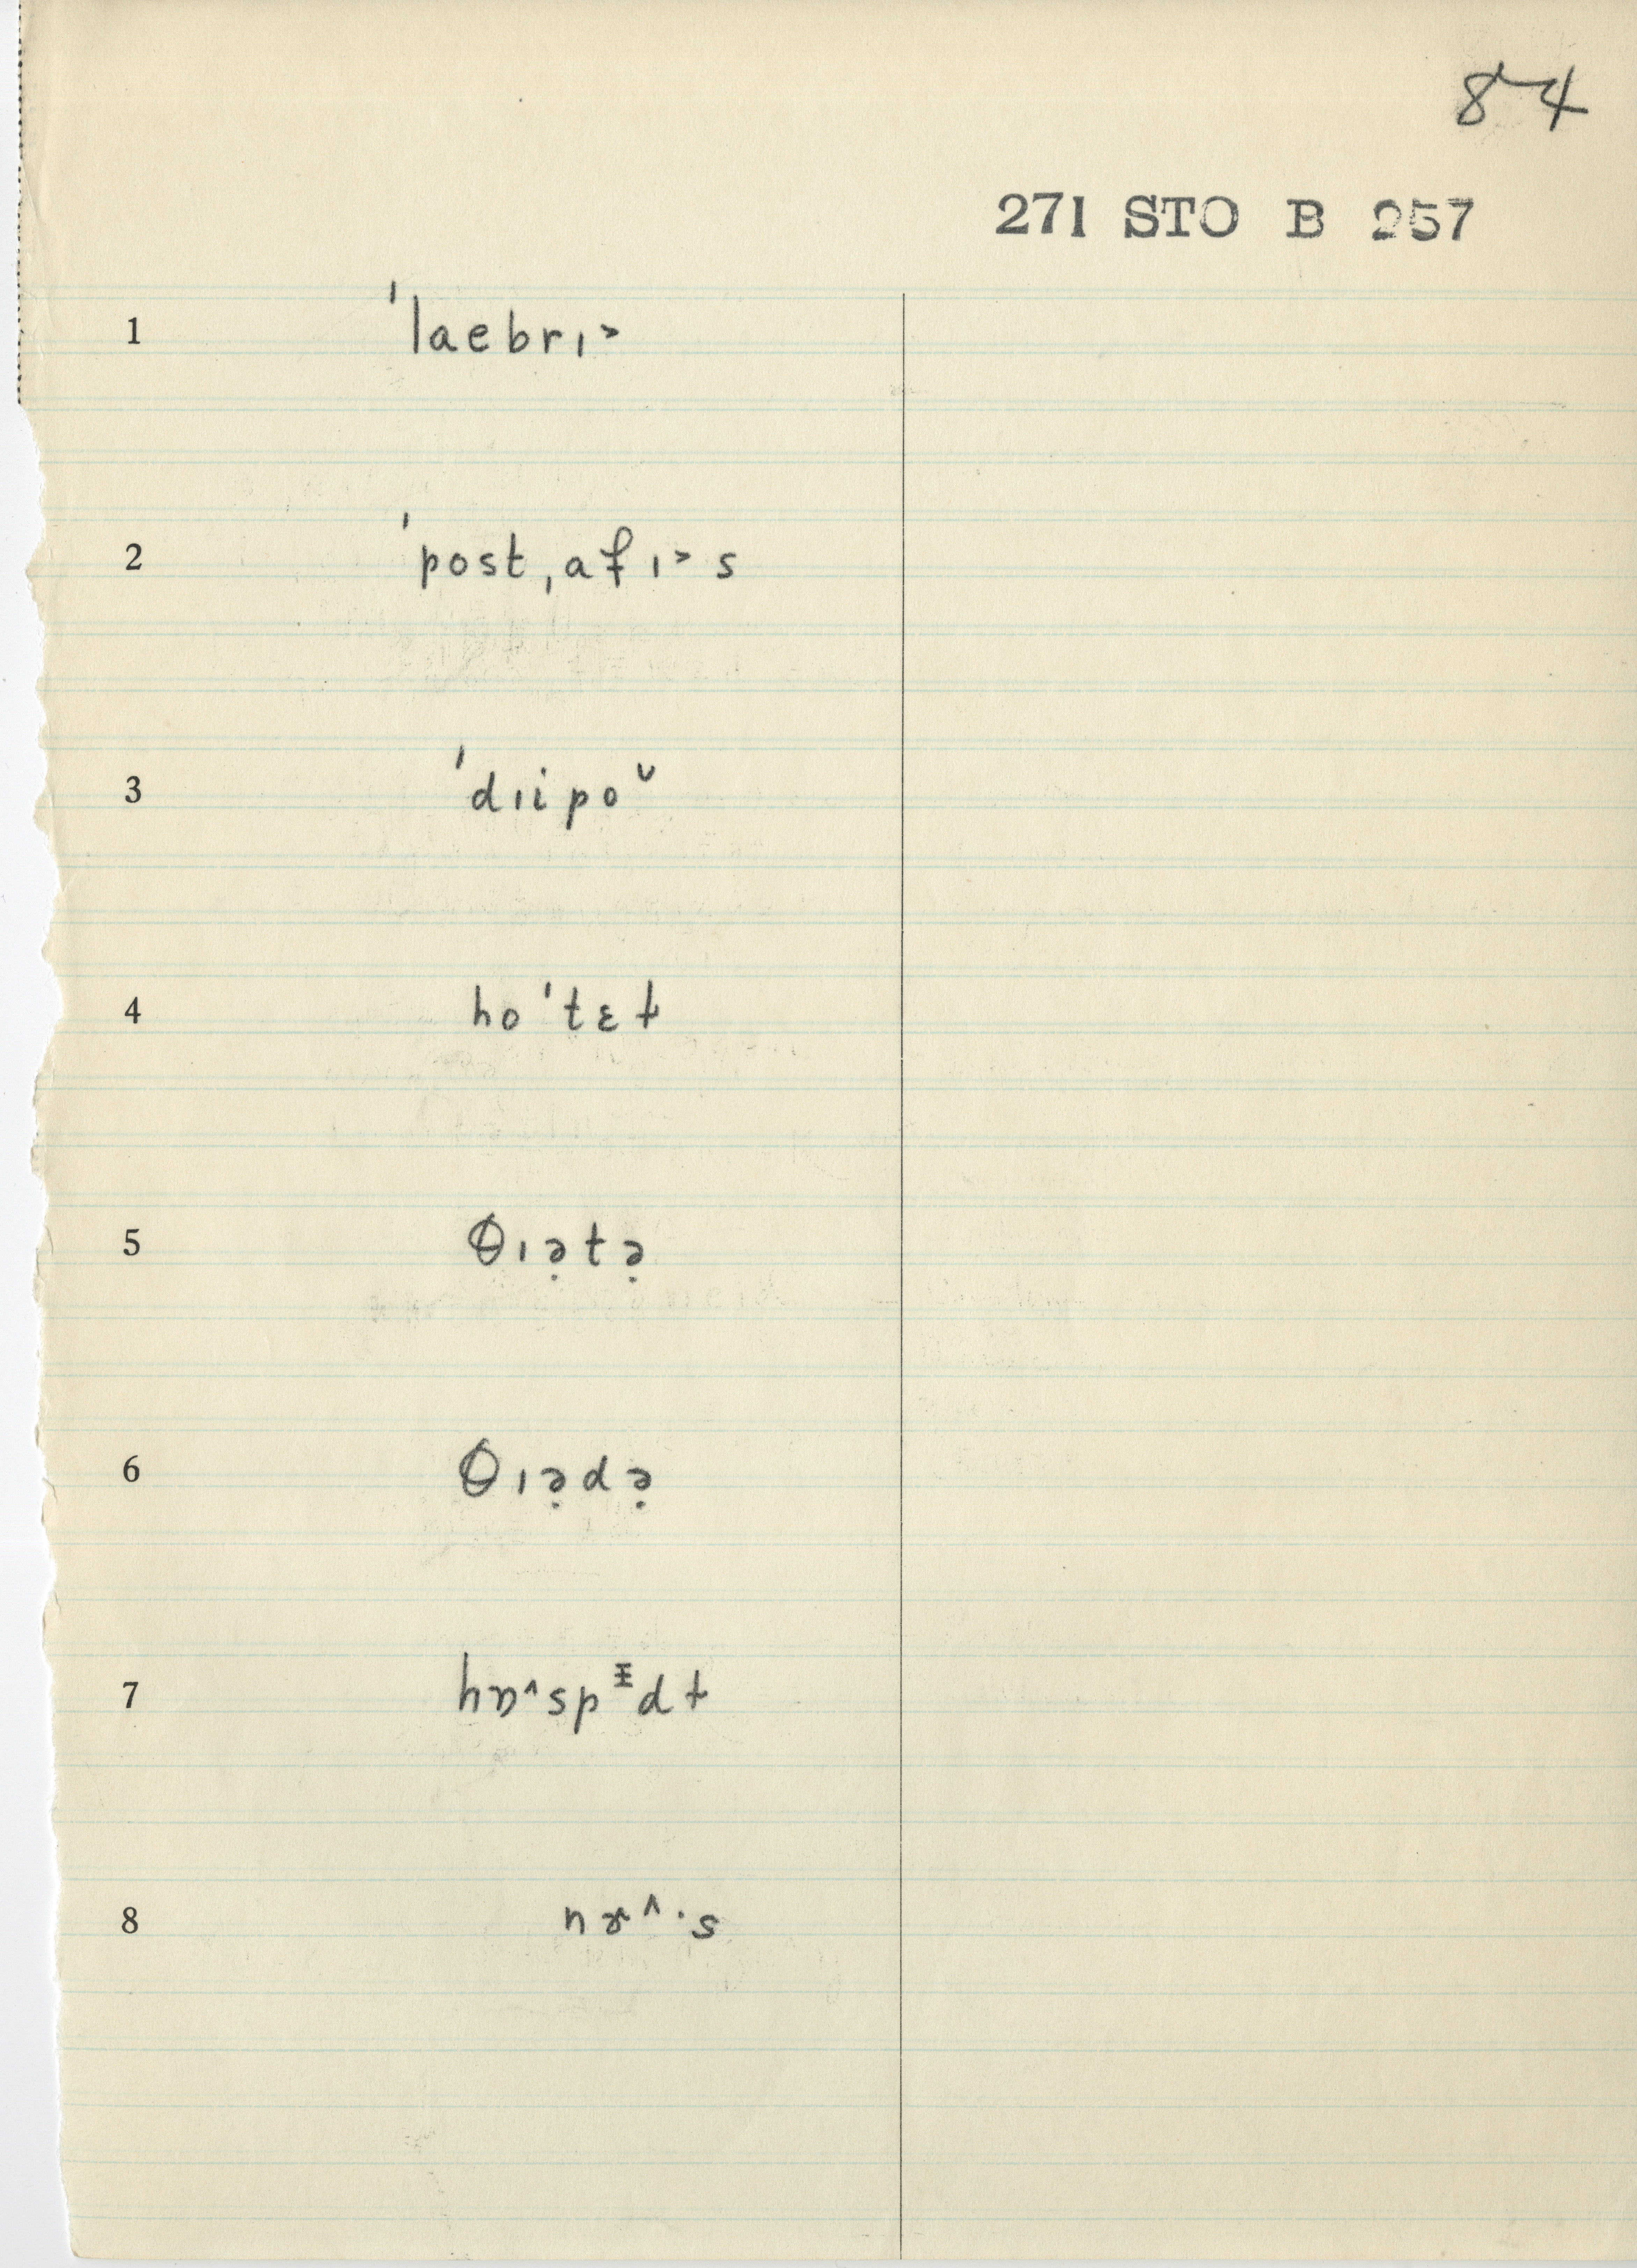 84
271 STO B 257
1 ˈlaebrɪ˃
2 ˈpost,afɪ˃s
3 ˈdɪipo˅
4 hoˈtɛɫ
5 θɪə̣tə̣
6 θɪə̣də̣
7 hɒ˄spᵻdɫ
8 nɚ˄·s